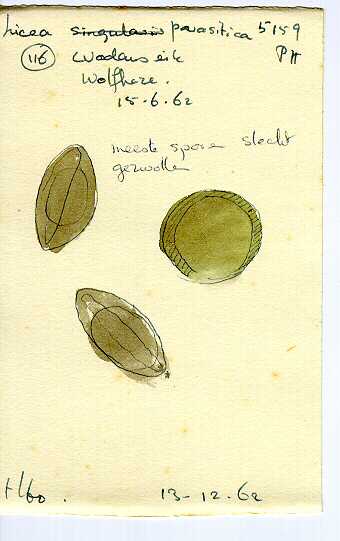 Licea singularis parasitica 5159
116 Wodans eik PH
Wolfheze.
15.6.62
meeste sporen slecht
gezwollen
13-12-62